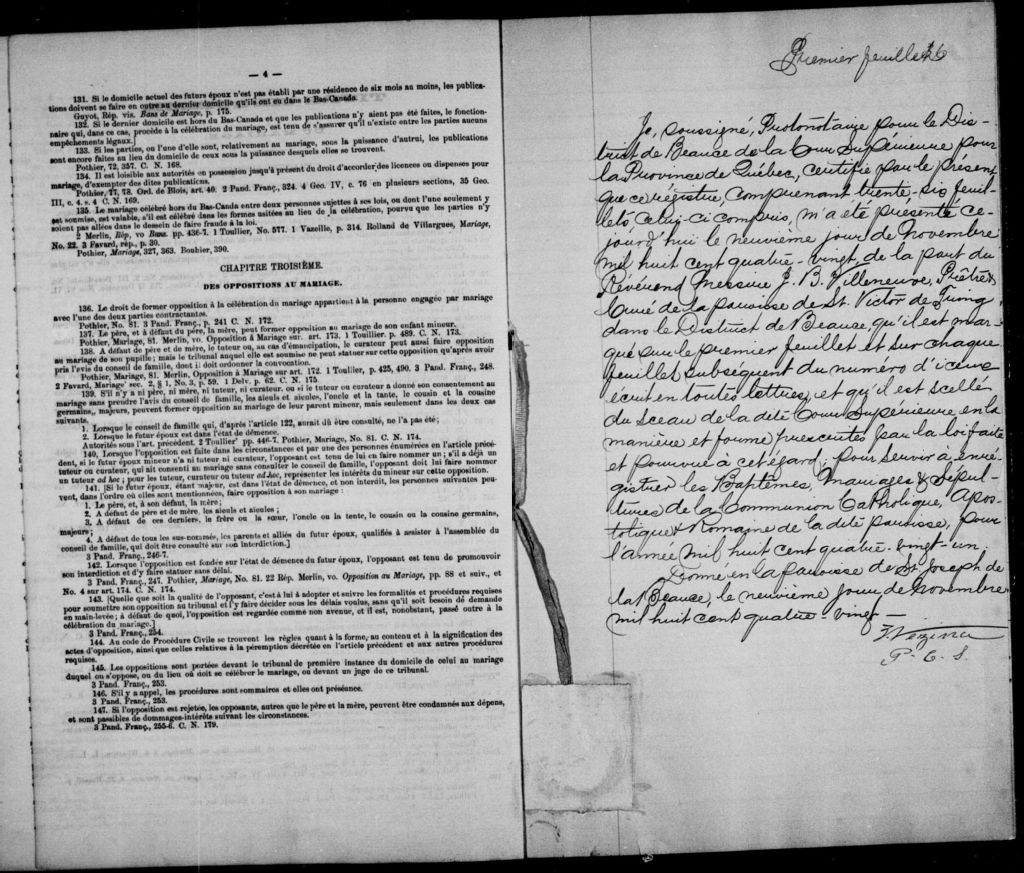 — 4 —
131. Si le domicile actuel des futurs époux n'est pas établi par une résidence de six mois au moins, les publica-
tions doivent se faire en outre au dernier domicile qu'ils ont eu dans le Bas-Canada.
Guyot, Rép. vis. Bans de Mariage, p. 175.
132. Si le dernier domicile est hors du Bas-Canada et que les publications n'y aient pas été faites, le fonction-
naire qui, dans ce cas, procède à la célébration du mariage, est tenu de s'assurer qu'il n'existe entre les parties aucuns
empêchements légaux.]
133. Si les parties, ou l'une d'elle sont, relativement au mariage, sous la puissance d'autrui, les publications
sont encore faites au lieu du domicile de ceux sous la puissance desquels elles se trouvent.
Pothier, 72, 357. C. N. 168.
134. Il est loisible aux autorités en possession jusqu'à présent du droit d'accorder des licences ou dispenses pour
mariage, d'exempter des dites publications.
Pothier, 77, 78. Ord. de Blois, art. 40. 2 Pand. Franç., 324. 4 Geo. IV, c. 76 en plusieurs sections, 35 Geo.
III, c. 4. s. 4 C. N. 169.
135. Le mariage célébré hors du Bas-Canada entre deux personnes sujettes à ses lois, ou dont l'une seulement y
est soumise, est valable, s'il est célébré dans les formes usitées au lieu de la célébration, pourvu que les parties n'y
soient pas allées dans le dessein de faire fraude à la loi.
2 Merlin, Rép, vo Bans. pp. 436-7. 1 Toullier, No. 577. 1 Vazeille, p. 314. Rolland de Villargues, Mariage,
No. 22. 3 Favard, rép., p. 30.
Pothier, Mariage, 327, 363. Bouhier, 390.
CHAPITRE TROISIÈME.
DES OPPOSITIONS AU MARIAGE.
136. Le droit de former opposition à la célébration du mariage appartient à la personne engagée par mariage
avec l'une des deux parties contractantes.
Pothier, No. 81. 3 Pand. Franç., p. 241 C. N. 172.
137. Le père, et à défaut du père, la mère, peut former opposition au mariage de son enfant mineur.
Pothier, Mariage, 81. Merlin, vo. Opposition à Mariage sur. art. 173. 1 Touillier. p. 489. C. N. 173.
138. A défaut de père et de mère, le tuteur ou, au cas d'émancipation, le curateur peut aussi faire opposition
au mariage de son pupille; mais le tribunal auquel elle est soumise ne peut statuer sur cette opposition qu'après avoir
pris l'avis du conseil de famille, dont il doit ordonner la convocation.
Pothier, Mariage, 81. Merlin, Opposition à Mariage sur art. 172. 1 Toullier, p. 425, 490. 3 Pand. Franç., 248.
2 Favard, Mariage' sec. 2, § 1, No. 3, p. 59. 1 Delv. p. 62. C. N. 175
139. S'il n'y a ni père, ni mère, ni tuteur, ni curateur, ou si le tuteur ou curateur a donné son consentement au
mariage sans prendre l'avis du conseil de famille, les aieuls et aieules, l'oncle et la tante, le cousin et la cousine
germains, majeurs, peuvent former opposition au mariage de leur parent mineur, mais seulement dans les deux cas
suivants.
1. Lorsque le conseil de famille qui, d'après l'article 122, aurait dû être consulté, ne l'a pas été;
2. Lorsque le futur époux est dans l'état de démence.
Autorités sous l'art. précédent. 2 Toullier' pp. 446-7. Pothier, Mariage, No. 81. C. N. 174.
140. Lorsque l'opposition est faite dans les circonstances et par une des personnes énumérées en l'article précé-
dent, si le futur époux mineur n'a ni tuteur ni curateur, l'opposant est tenu de lui en faire nommer un; s'il a déjà un
tuteur ou curateur, qui ait consenti au mariage sans consulter le conseil de famille, l'opposant doit lui faire nommer
un tuteur ad hoc; pour les tuteur, curateur ou tuteur ad hoc, représenter les intérêts du mineur sur cette opposition.
141. [Si le futur époux, étant majeur, est dans l'état de démence, et non interdit, les personnes suivantes peu-
vent, dans l'ordre où elles sont mentionnées, faire opposition à son mariage:
1. Le père, et, à son défaut, la mère;
2. A défaut de père et de mère, les aieuls et aieules;
3. A défaut de ces derniers, le frère ou la sœur, l'oncle ou la tante, le cousin ou la cousine germains,
majeurs;
4. A défaut de tous les sus-nommés, les parents et alliés du futur époux, qualifiés à assister à l'assemblée du
conseil de famille, qui doit être consulté sur son interdiction.]
3 Pand. Franç., 246-7.
142. Lorsque l'opposition est fondée sur l'état de démence du futur époux, l'opposant est tenu de promouvoir
son interdiction et d'y faire statuer sans délai.
3 Pand. Franç., 247. Pothier, Mariage, No. 81. 22 Rép. Merlin, vo. Opposition au Mariage, pp. 88 et suiv., et
No. 4 sur art. 174. C. N. 174.
143. [Quelque que soit la qualité de l'opposant, c'est à lui à adopter et suivre les formalités et procédures requises
pour soumettre son opposition au tribunal et l'y faire décider sous les délais voulus, sans qu'il soit besoin de demande
en main-levée; à défaut de quoi, l'opposition est regardée comme non avenue, et il est, nonobstant, passé outre à la
célébration du mariage.]
3 Pand. Franç., 254.
144. Au code de Procédure Civile se trouvent les règles quant à la forme, au contenu et à la signification des
actes d'opposition, ainsi que celles relatives à la péremption décrétée en l'article précédent et aux autres procédures
requises.
145. Les oppositions sont portées devant le tribunal de première instance du domicile de celui au mariage
duquel on s'oppose, ou du lieu où doit se célébrer le mariage, ou devant un juge de ce tribunal.
3 Pand. Franç., 253.
146. S'il y a appel, les procédures sont sommaires et elles ont préséance.
3 Pand. Franç., 253.
147. Si l'opposition est rejetée, les opposants, autres que le père et la mère, peuvent être condamnés aux dépens,
et sont passibles de dommages-intérêts suivant les circonstances.
3 Pand. Franç., 255-6. C. N. 179.
Premier feuillet
Je, soussigné, Protonotaire pour le Dis-
trict de Beauce de la Cour Supérieure pour
la Province de Québec, certifie par le présent
que ce régistre, comprenant trente-six feuil-
lets celui-ci compris, m'a été présenté ce-
jourd'hui le neuvième jour de Novembre
mil huit cent quatre-vingt, de la part du
Révérend Messire J. B. Villeneuve, Prêtre &
Curé de la paroisse de St. Victor de Tring
dans le District de Beauce, qu'il est mar-
qué sur le premier feuillet et sur chaque
feuillet subséquent du numéro d'iceux
écrit en toutes lettres, et qu'il est scellé
du sceau de la dite Cour Supérieure en la
manière et forme prescrites par la loi faite
et pourvue à cet égard, pour servir à enré-
gistrer les Baptêmes, Mariages & Sépul-
tures de la Communion Catholique, Apos-
tolique & Romaine de la dite paroisse, pour
l'année mil huit cent quatre-vingt-un.
Donné en la paroisse de St. Joseph de
la Beauce, le neuvième jour de Novembre
mil huit cent quatre-vingt
Vézina
P. C. S.